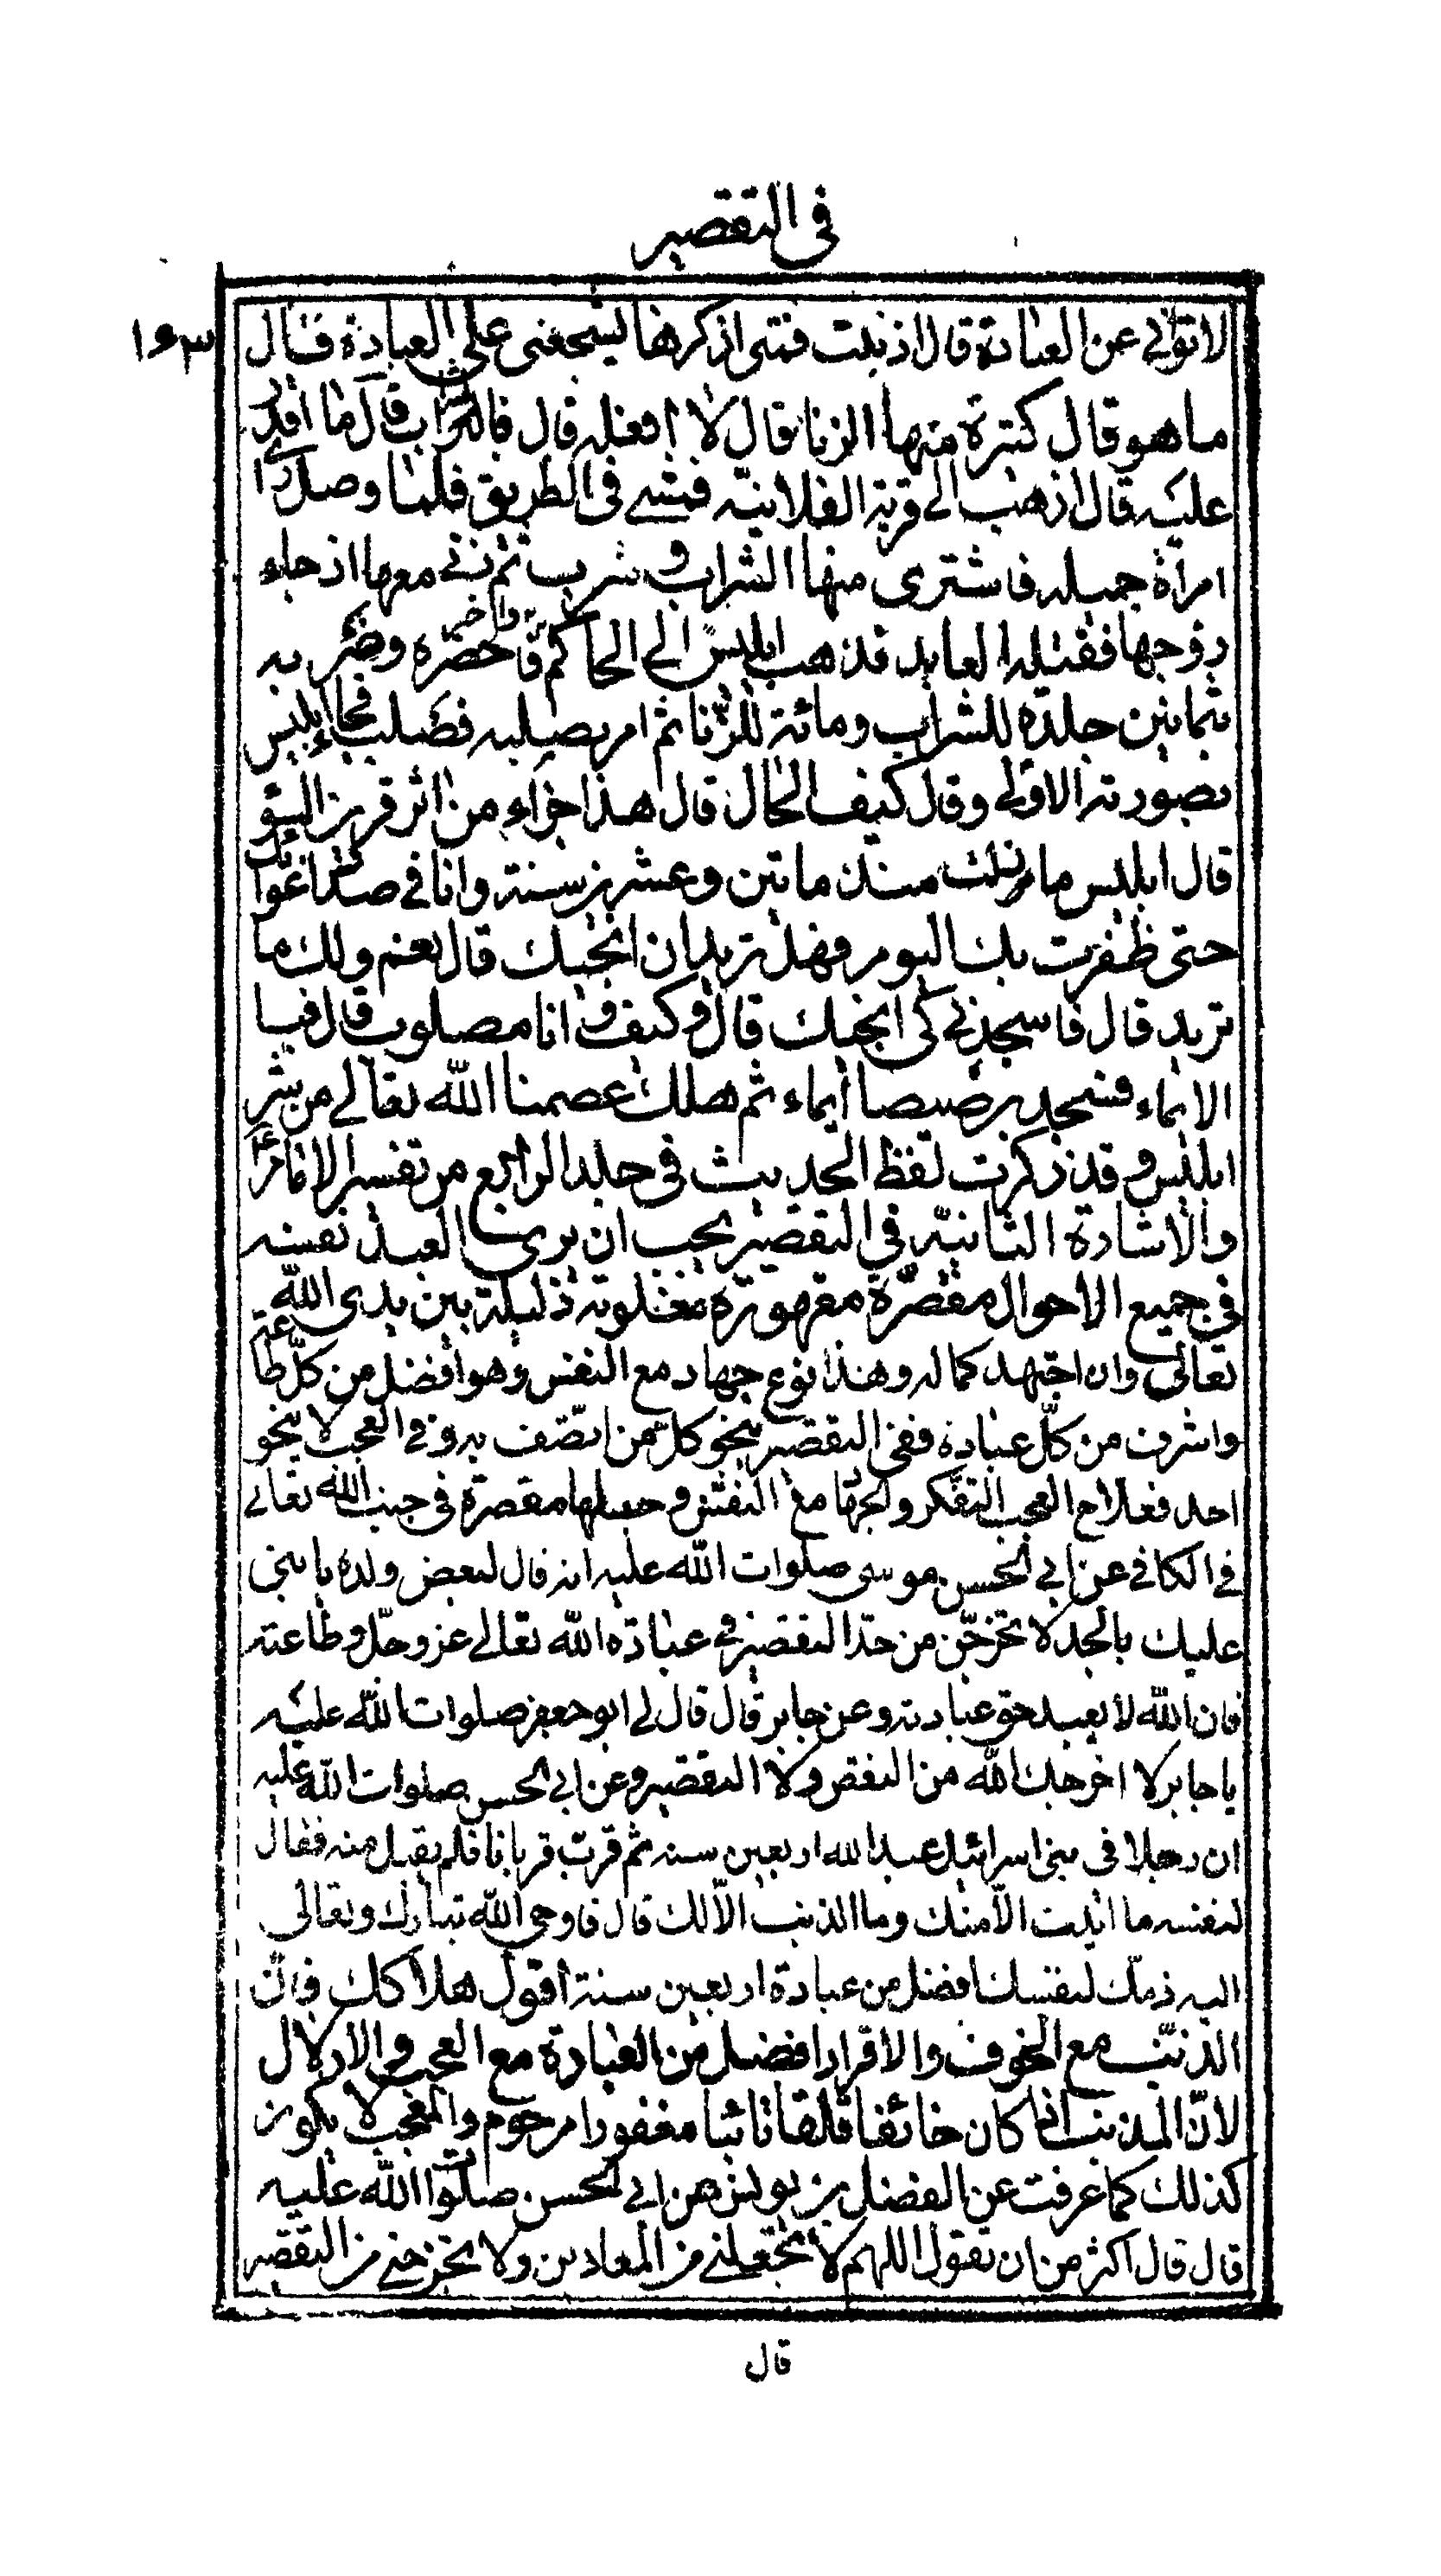 في التقصير
١٠٣
لا توانى عن العبادة قال اذنبت فمتى اذكرها ليشجعنى على العبادة فقال
ما هو قال كثيرة منها الزنا قال لا افعله قال فالشراب قال ما اقدر
عليه قال اذهب الى قرية الفلانيّه فمشى في الطريق فلما وصل راى
امراة جميله فاشترى منها الشراب و شرب ثم زنى معها اذ جاء
زوجها فقتله العابد فذهب ابليس الى الحاكم فاحضره وضرب به
ثمانين جلدة للشراب ومائة للزنا ثم امر بصلبه فصلب فجاء ابليس
بصورته الاولى وقال كيف الحال قال هذا جزاء من اثر قرين السوء
قال ابليس ما منذ ماتين وعشرين سنة وانا في صدد اغوائك
حتى ظفرت بك اليوم فهل تريد ان انجيك قال نعم ولك ما
تريد قال فاسجدنى كى انجيك قال و كيف و انا مصلوب قال فبا
الايماء فسجد برصيصا ايماء ثم هلك عصمنا الله تعالى من شر
ابليس و قد ذكرت لفظ الحديث في جلد الرابع من تفسير الامام ع
والاشارة الثانيّه في التقصير يجب ان يرى العبد نفسه
في جميع الاحوال مقصّرة مقهورة مغلوبة ذليلة بين يدى الله
تعالى وان اجتهد كماله وهذا نوع جهاد مع النفس وهو افضل من كلّ طاعته
واشرف من كلّ عبادة ففي التقصير ينجو كلّ من اتّصف به وفى العجب لا ينجو
احد فعلاج العجب التفكر و مع النفس و جعلها مقصرة في جنب الله تعالى
في الكافي عن ابي الحسن موسى صلوات الله عليه انه قال لبعض ولده يا بني
عليك بالجد لا تخرجّن من حدّ التقصير في عبادة الله تعالى عز وجلّ وطاعته
فان الله لا يعبد حق عبادته وعن جابر قال قال لي ابو جعفر صلوات الله عليه
يا جابر لا اخرجك الله من النقص ولا التقصير وعن ابي الحسن صلوات الله عليه
ان رجلا في بني اسرائيل عبد الله اربعين سنه ثم قرب قربانا فلم يقبل منه فقال
لنفسه ما اتيت الّا منك وما الذنب الّا لك قال فاوحى الله تبارك وتعالى
اليه ذمّك لنفسك افضل من عبادة اربعين سنة اقول هلا كك فانّ
الذنب مع الخوف والاقرار افضل من العبادة مع العجب و الادلال
لانّ المذنب اذا كان خائفا قلقا تائبا مغفورا مرحوم والمعجب لا يكون
كذلك كما عرفت عن الفضل بن يونس عن ابي الحسن صلوات الله عليه
قال قال اكثر من ان تقول اللهم لا تجعلنى من المعادين ولا تخرجنى من التقصير
قال